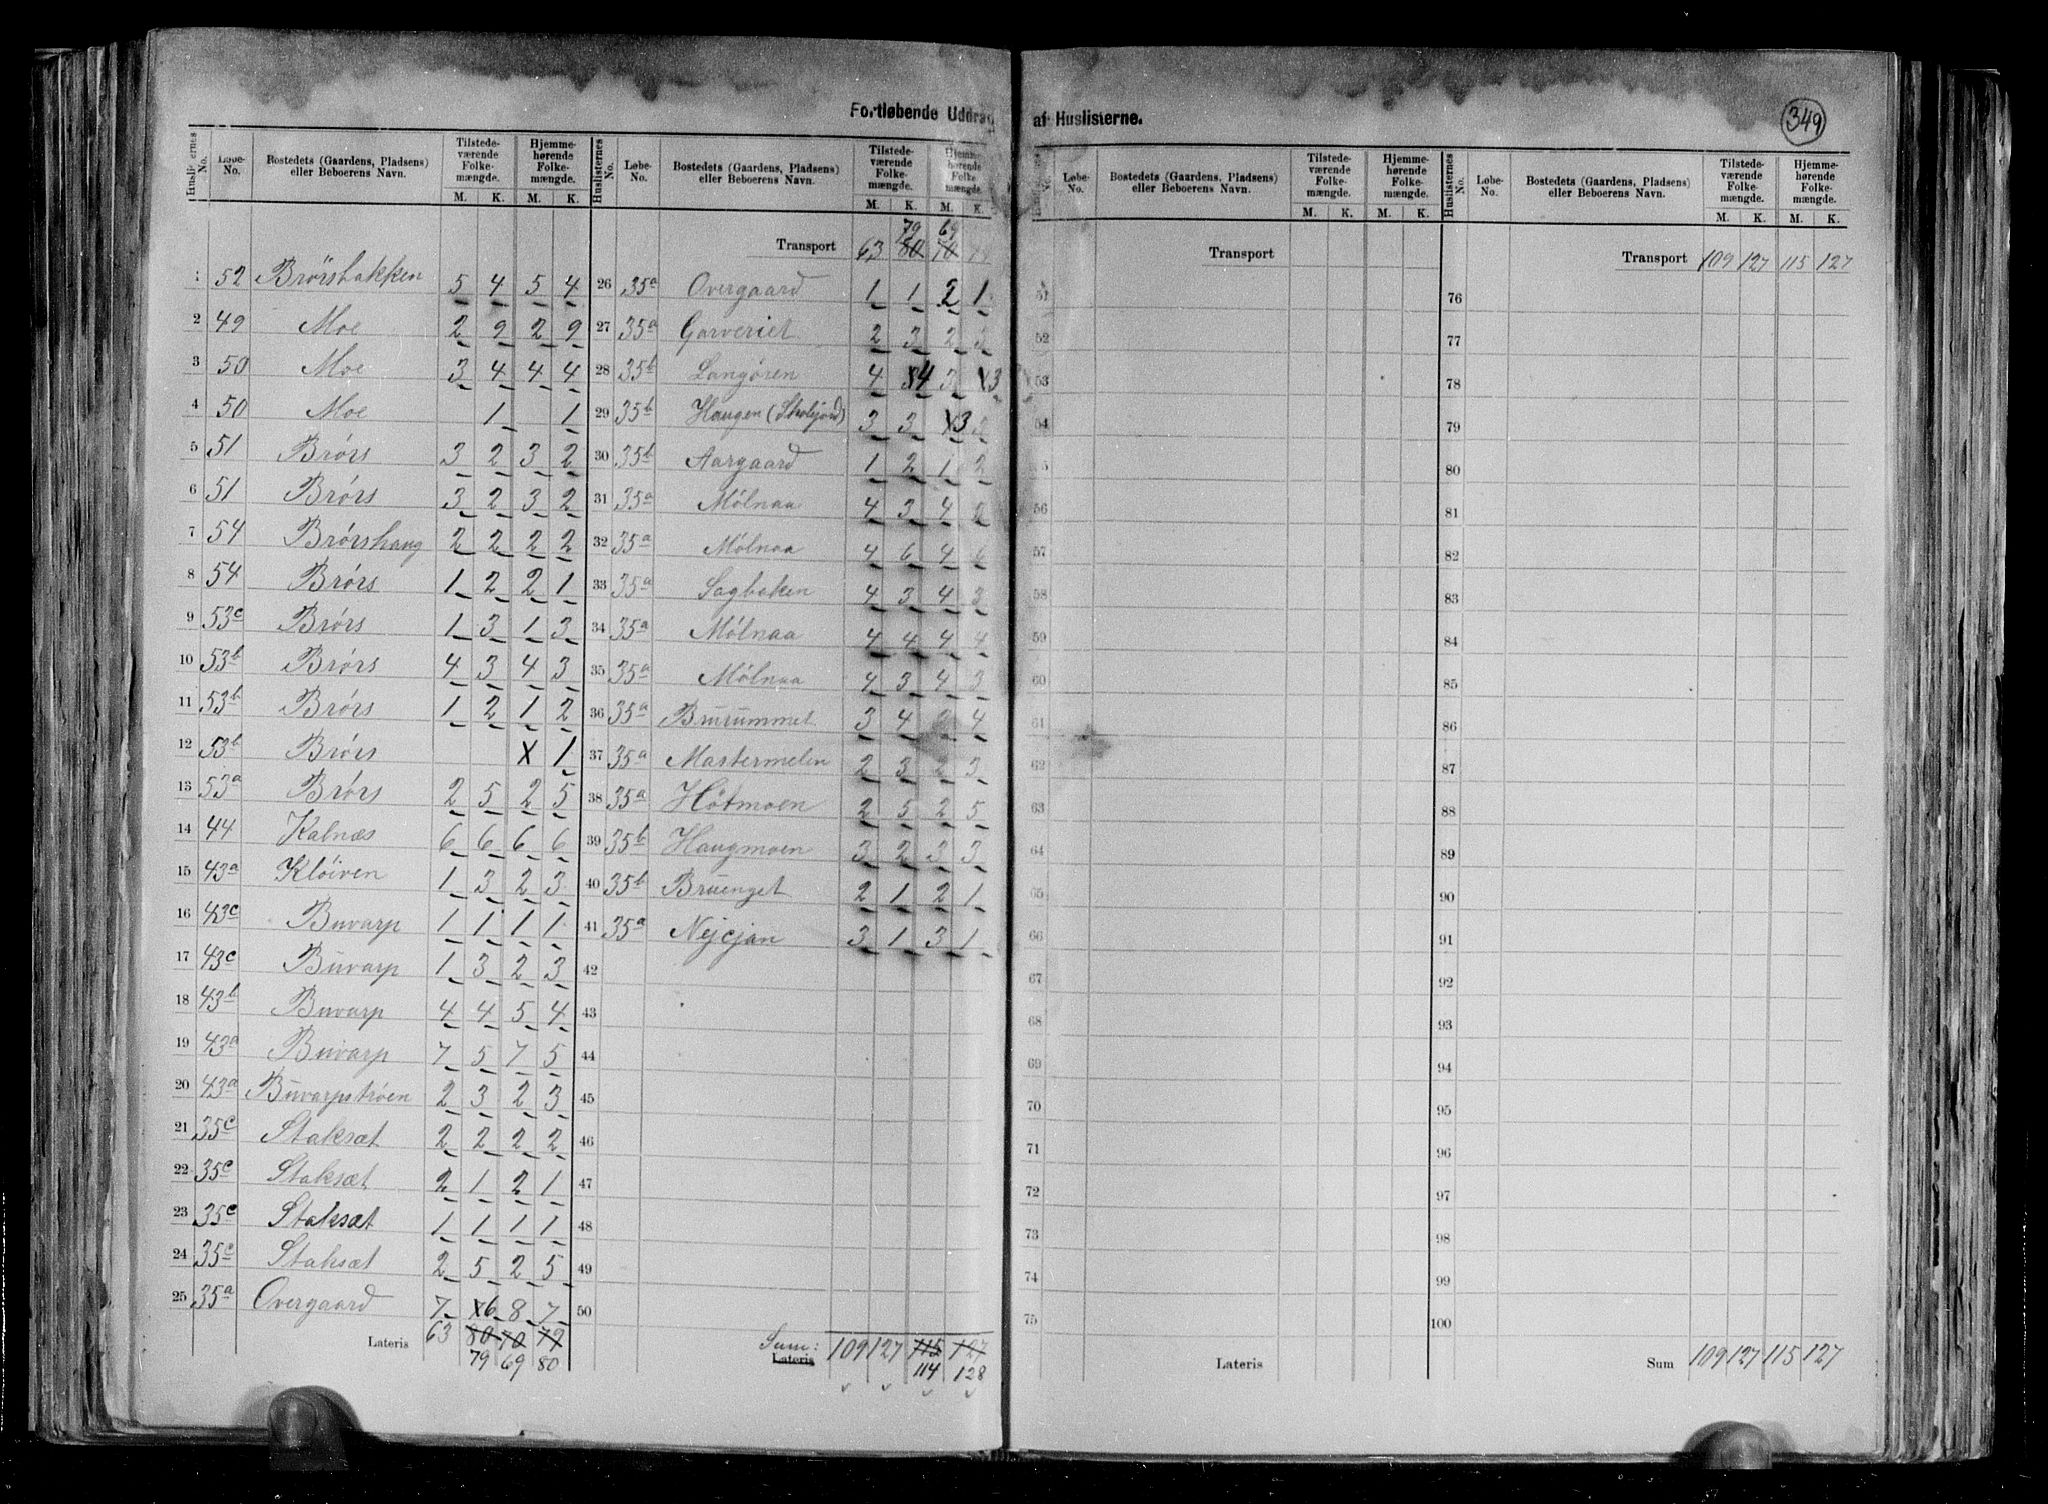 Fortløbende Uddrag af Huslisterne.
349
Huslisternes No. | Løbe-No. | Bostedets (Gaardens, Pladsens) eller Beboerens Navn. | Tilstede-værende Folke-mængde. M. K. | Hjemme-hørende Folke-mængde. M. K.
1 52 Brörsbakken 5 4 5 4
2 49 Moe 2 9 2 9
3 50 Moe 3 4 4 4
4 50 Moe 1 1
5 51 Brörs 3 2 3 2
6 51 Brörs 3 2 3 2
7 54 Brörshaug 2 2 2 2
8 54 Brörs 1 2 2 1
9 53c Brörs 1 3 1 3
10 53b Brörs 4 3 4 3
11 53b Brörs 1 2 1 2
12 53b Brörs X 1
13 53a Brörs 2 5 2 5
14 44 Kalnæs 6 6 6 6
15 43a Klöiven 1 3 2 3
16 43c Buvarp 1 1 1 1
17 43c Buvarp 1 3 2 3
18 43b Buvarp 4 4 5 4
19 43a Buvarp 7 5 7 5
20 43a Buvarpströen 2 3 2 3
21 35c Staksæt 2 2 2 2
22 35c Staksæt 2 1 2 1
23 35c Staksæt 1 1 1 1
24 35c Staksæt 2 5 2 5
25 35a Overgaard 7 6 8 7
Lateris 63 80 70 79
79 69 80
Huslisternes No. | Løbe-No. | Bostedets (Gaardens, Pladsens) eller Beboerens Navn. | Tilstede-værende Folke-mængde. M. K. | Hjemme-hørende Folke-mængde. M. K.
79 69
Transport 63 80 70
26 35a Overgaard 1 1 2 1
27 35a Garveriet 2 3 2 3
28 35b Langören 4 4 3 3
29 35b Haugen (Skoljord) 3 3 3 2
30 35b Aargaard 1 2 1 2
31 35a Mölnaa 4 3 4 2
32 35a Mölnaa 4 6 4 6
33 35a Sagbaken 4 3 4 3
34 35a Mölnaa 4 4 4 4
35 35a Mölnaa 4 3 4 3
36 35a Bururnmet 3 4 4
37 35a Mastermelen 2 3 2 3
38 35a Hötmoen 2 5 2 5
39 35b Haugmoen 3 2 3 3
40 35b Bruenget 2 1 2 1
41 35a Nejcjan 3 1 3 1
42
43
44
45
46
47
48
49
50
Sum: Lateris 109 127 115 127
114 128
Huslisternes No. | Løbe-No. | Bostedets (Gaardens, Pladsens) eller Beboerens Navn. | Tilstede-værende Folke-mængde. M. K. | Hjemme-hørende Folke-mængde. M. K.
Transport
51
52
53
54
5
56
57
58
59
60
61
62
63
64
65
66
67
68
69
70
71
72
73
74
75
Lateris
Huslisternes No. | Løbe-No. | Bostedets (Gaardens, Pladsens) eller Beboerens Navn. | Tilstede-værende Folke-mængde. M. K. | Hjemme-hørende Folke-mængde. M. K.
Transport 109 127 115 127
76
77
78
79
80
81
82
83
84
85
86
87
88
89
90
91
92
93
94
95
96
97
98
99
100
Sum 109 127 115 127